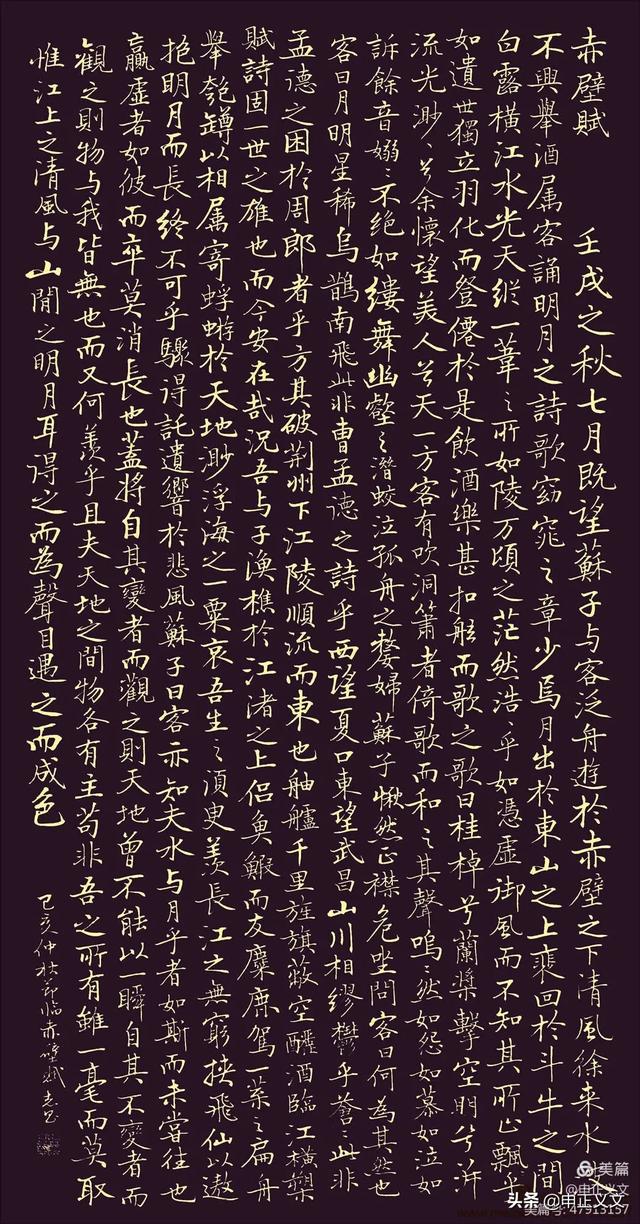 赤壁賦 壬戌之秋七月既望蘇子与客泛舟遊於赤壁之下清風徐来水波
不興舉酒属客誦明月之詩歌窈窕之章少焉月出於東山之上裴回於斗牛之間
白露橫江水光天縱一葦之所如陵万頃之茫然浩〻乎如馮虛御風而不知其所止飄乎
如遺世獨立羽化而登僊於是飲酒樂甚扣舷而歌之歌曰桂棹兮蘭槳擊空明兮泝
流光渺〻兮余懷望美人兮天一方客有吹洞簫者倚歌而和之其聲嗚〻然如怨如慕如泣如
訴餘音嫋〻不絕如縷舞幽壑之潛蛟泣孤舟之嫠婦蘇子愀然正襟危坐問客曰何為其然也
客曰月明星稀烏鵲南飛此非曹孟德之詩乎西望夏口東望武昌山川相繆鬱乎蒼〻此非
孟德之困於周郎者乎方其破荆州下江陵順流而東也舳艫千里旌旗蔽空釃酒臨江橫槊
賦詩固一世之雄也而今安在哉況吾与子漁樵於江渚之上侶魚鰕而友麋鹿駕一葉之扁舟
舉匏罇以相属寄蜉蝣於天地渺浮海之一粟哀吾生之須臾羡長江之無窮挾飛仙以遨
抱明月而長終不可乎驟得託遺響於悲風蘇子曰客亦知夫水与月乎者如斯而未嘗往也
贏虛者如彼而卒莫消長也蓋將自其變者而觀之則天地曾不能以一瞬自其不變者而
觀之則物与我皆無也而又何羡乎且夫天地之間物各有主苟非吾之所有雖一毫而莫取
惟江上之清風与山間之明月耳得之而為聲目遇之而成色
己亥仲秋節臨赤壁賦
美篇
美篇号: 47913157
头条 @申正义文